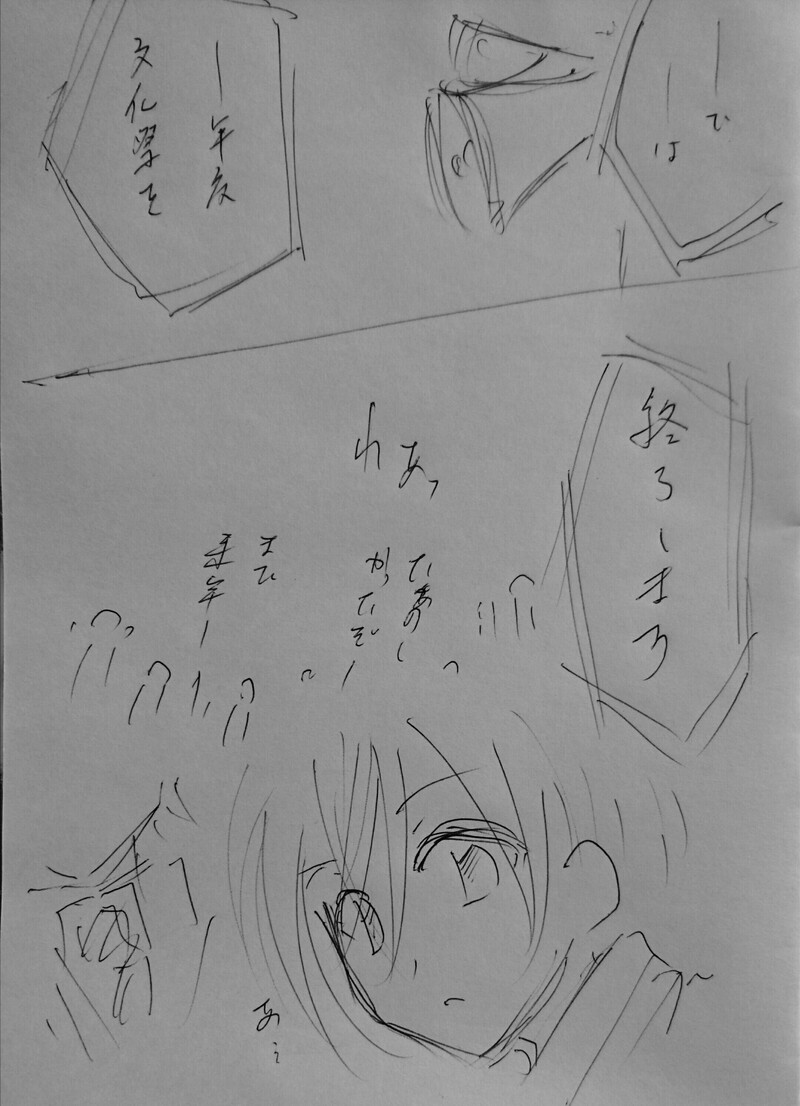 ーで
ーは
ー年度
文化祭を
わあっ
たのし
かったぞー
また
来年ー
あ…